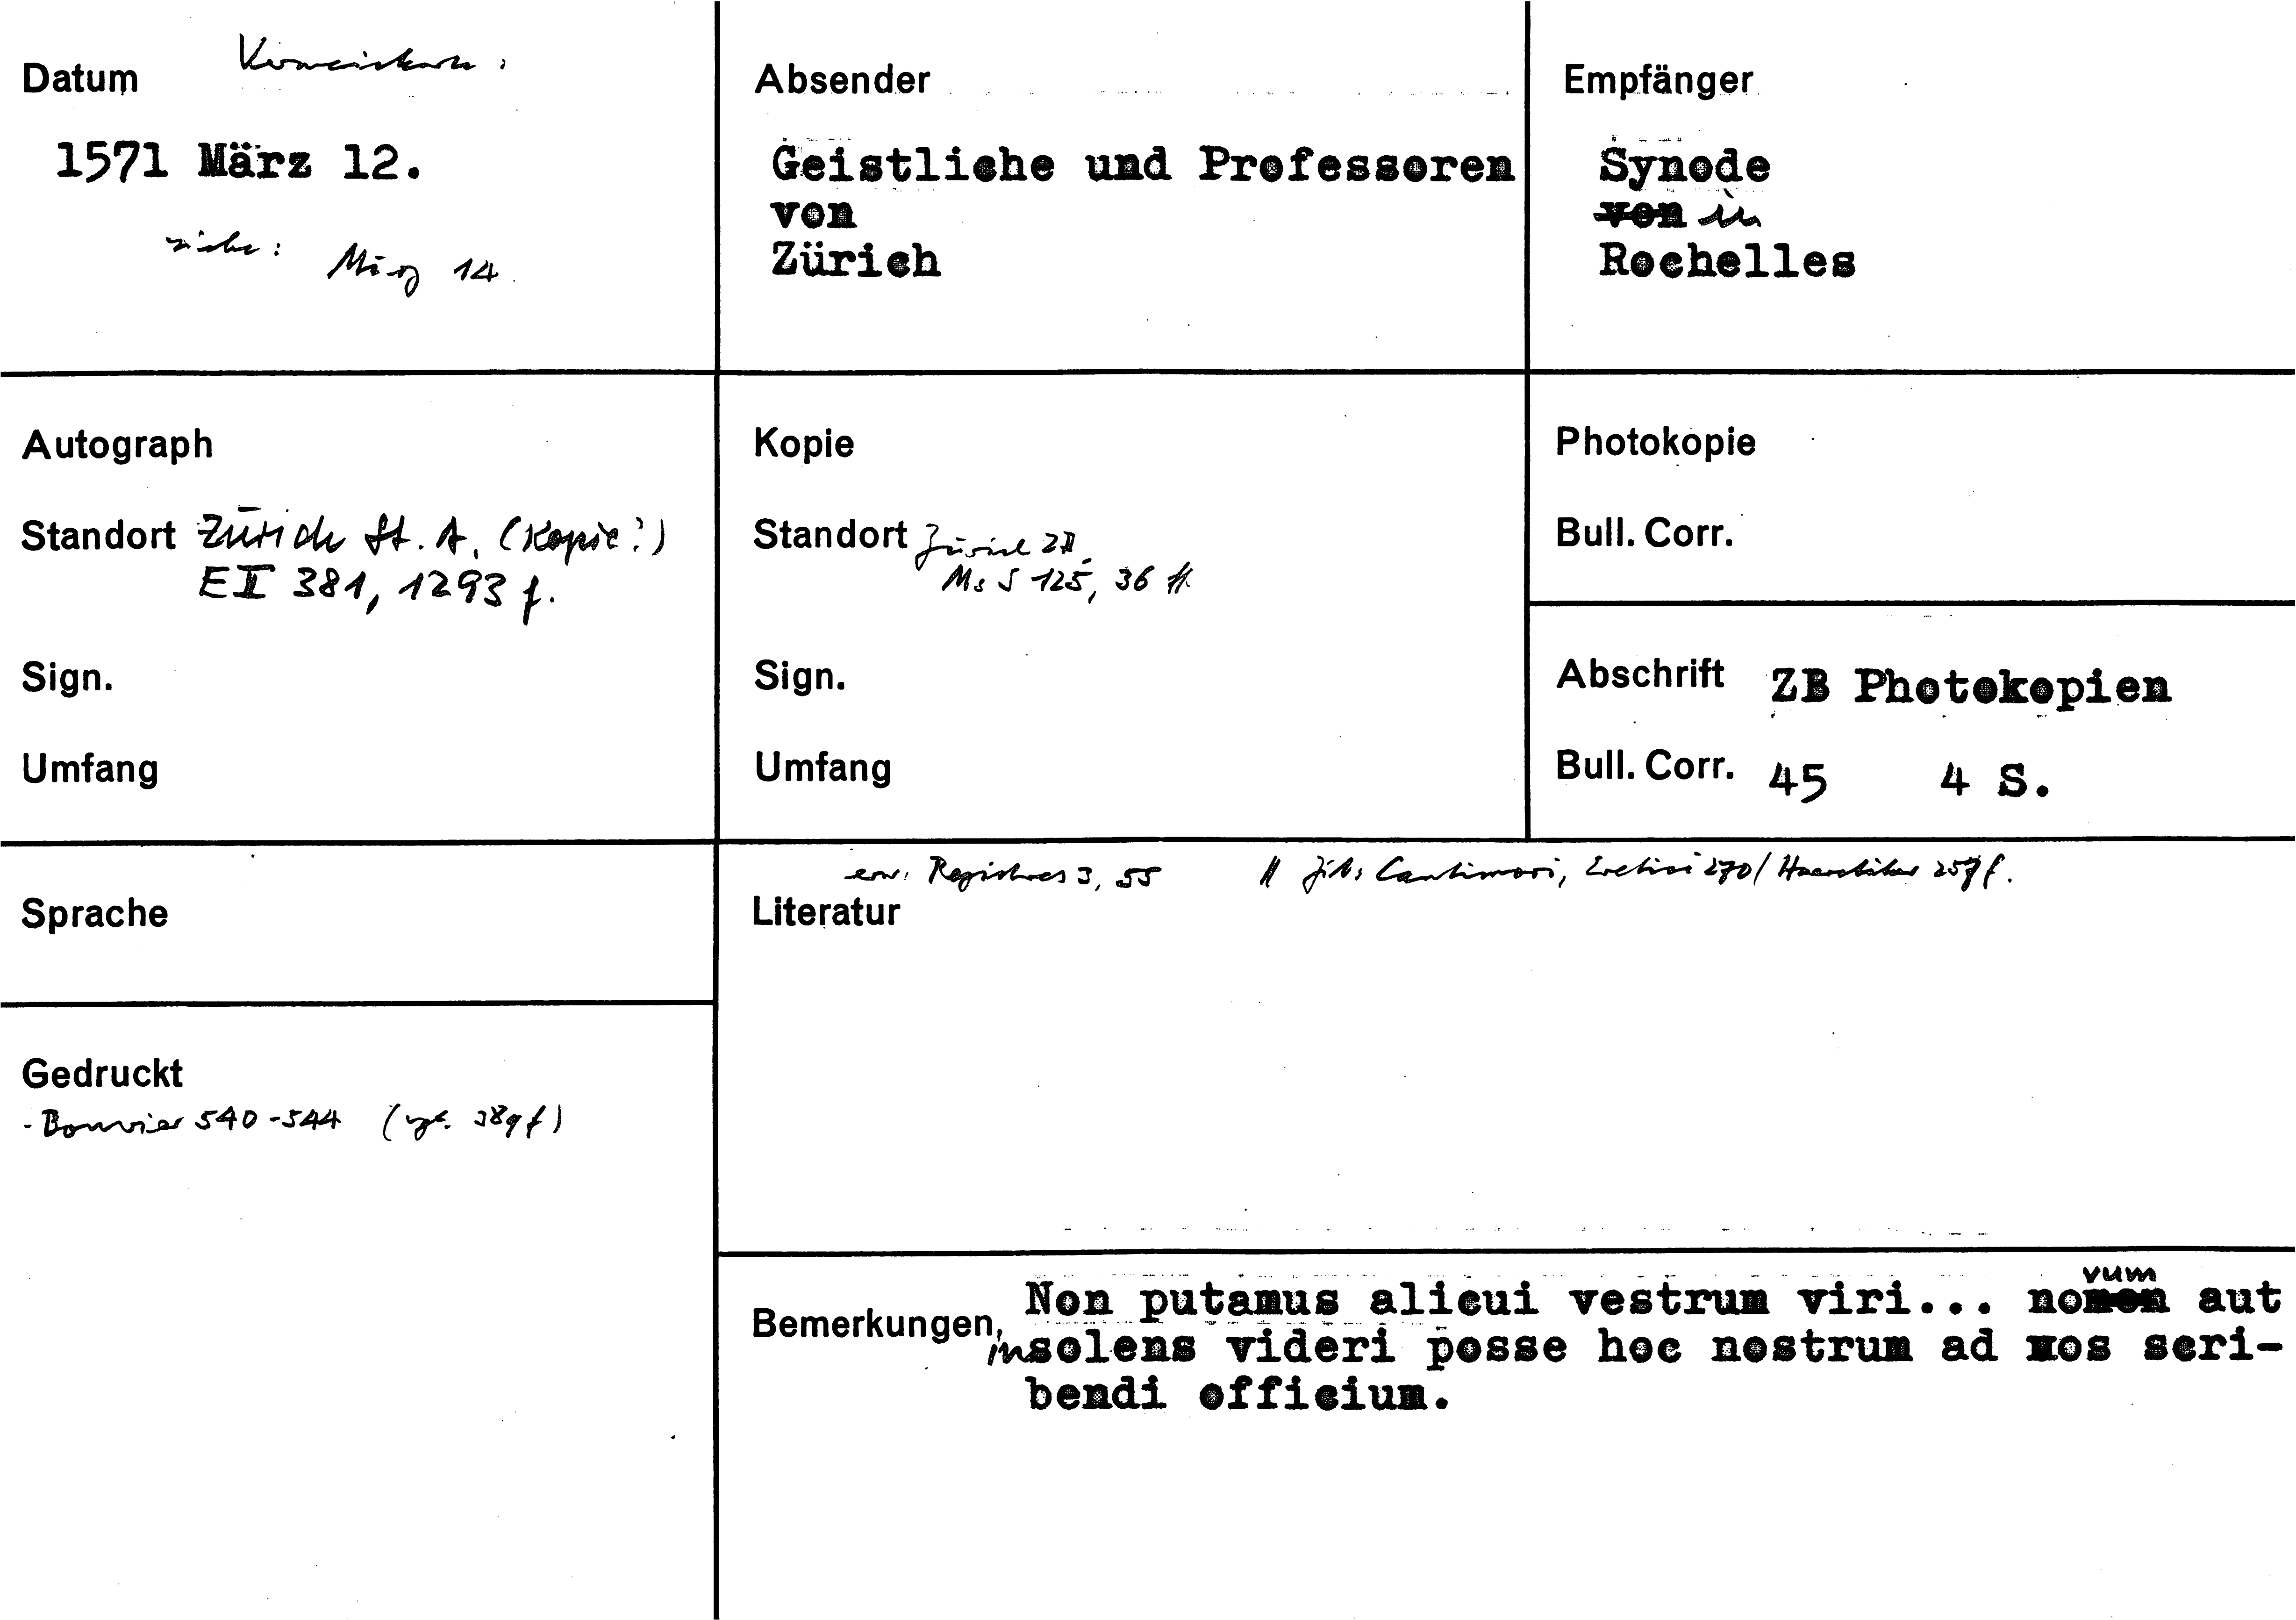 Datum Verweiskarte:
1571 März 12.
siehe: März 14.
Absender
Geistliche und Professoren
von
Zürich
Empfänger
Synode
von in
Rochelles
Autograph
Standort Zürich St. A. (Kopie?)
E II 381, 1293 f.
Sign.
Umfang
Kopie
Standort Zürich ZB
Ms S 125, 36 ff.
Sign.
Umfang
Photokopie
Bull. Corr.
Abschrift ZB Photokopien
Bull. Corr. 45 4 S.
Sprache
Gedruckt
- Bouvier 540-544 (vgl. 389 f)
erw. Registres 3, 55 // zit. Cantimori, Eretici 270/ Haeretiker 257 f.
Literatur
Bemerkungen, Non putamus alicui vestrum viri... nomen vum aut
insolens videri posse hoc nostrum ad vos scri-
bendi officium.